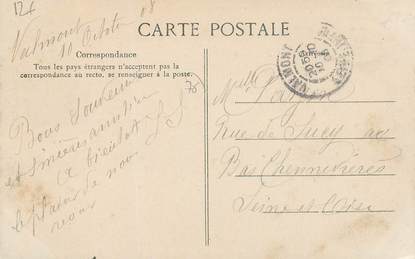 12f
08
Valmont
11 Octobre
CARTE POSTALE
Correspondance
Tous les pays étrangers n'acceptent pas la
correspondance au recto, se renseigner à la poste.
78
Bons Souvenirs
et sincères amitiés
à bientôt
le plaisir de nous
revoir
VALMONT
Mlle
rue de Sucy au
Bas Chennevières
Seine et Oise